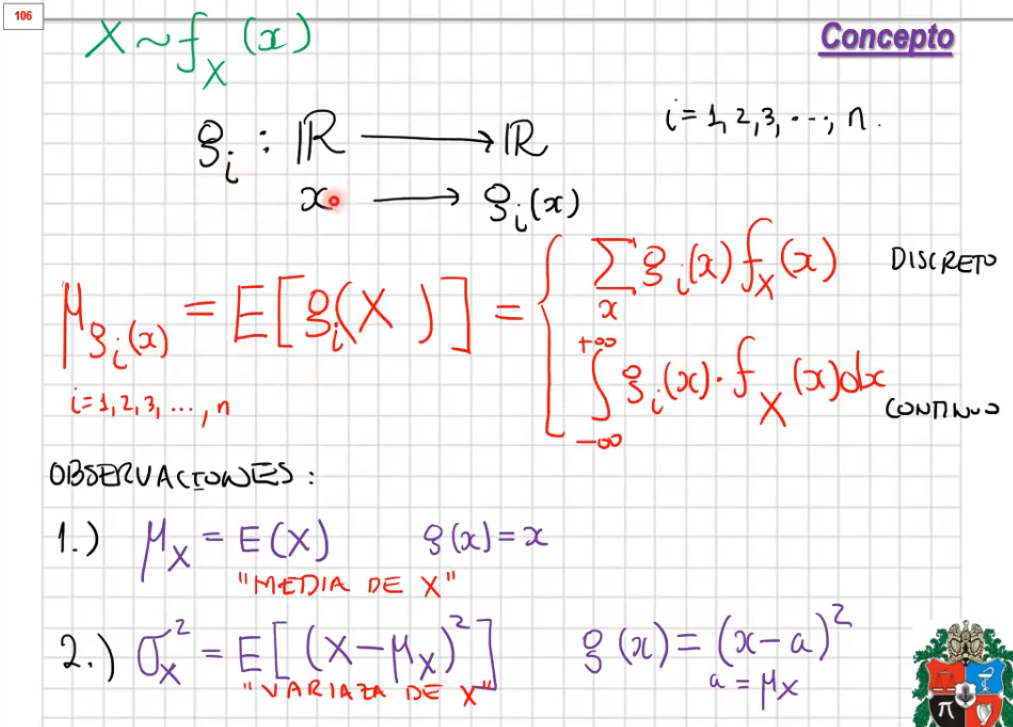 106
X ~ f_X (x)
Concepto
g_i : ℝ ⟶ ℝ
i = 1, 2, 3, ..., n.
x ⟶ g_i(x)
μ_{g_i(x)} = E[g_i(X)] = { ∑_x g_i(x) f_X(x) DISCRETO
∫_{-∞}^{+∞} g_i(x) · f_X(x) dx CONTINUO
i = 1, 2, 3, ..., n
OBSERVACIONES :
1.) μ_X = E(X) g(x) = x
"MEDIA DE X"
2.) σ_X^2 = E[(X - μ_X)^2] g(x) = (x - a)^2
"VARIAZA DE X" a = μ_X
π